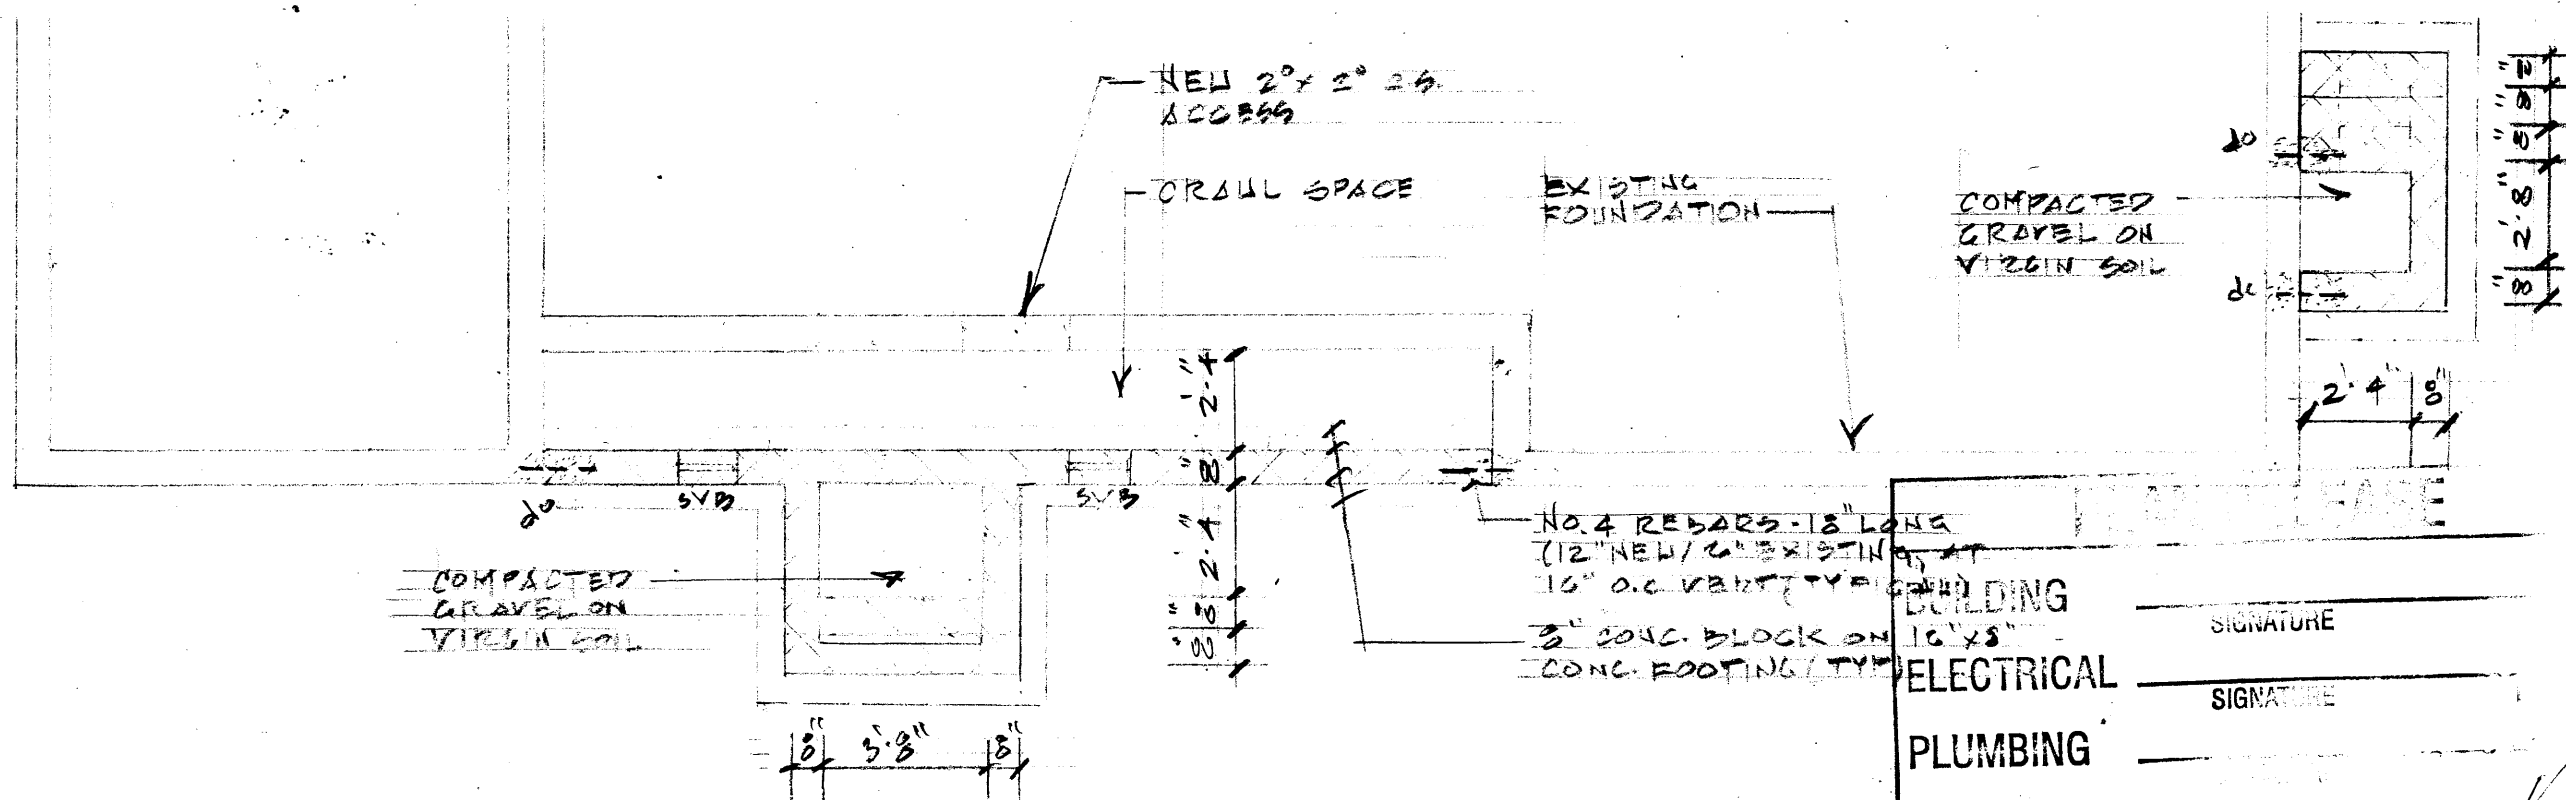 NEW 2⁰ x 2⁰ C.S.
ACCESS
CRAWL SPACE
EXISTING
FOUNDATION
COMPACTED
GRAVEL ON
VIRGIN SOIL
do
8"
8"
2'·8"
8"
2'·4"
8"
2'·4"
8"
2'·4"
8"
8"
do
SVB
SVB
COMPACTED
GRAVEL ON
VIRGIN SOIL
8"
3'·8"
8"
NO. 4 REBARS - 18" LONG
(12" NEW / 6" EXISTING) AT
16" O.C. VERT (TYPICAL)
8" CONC. BLOCK ON 16"x8"
CONC. FOOTING (TYP)
BUILDING
SIGNATURE
ELECTRICAL
SIGNATURE
PLUMBING